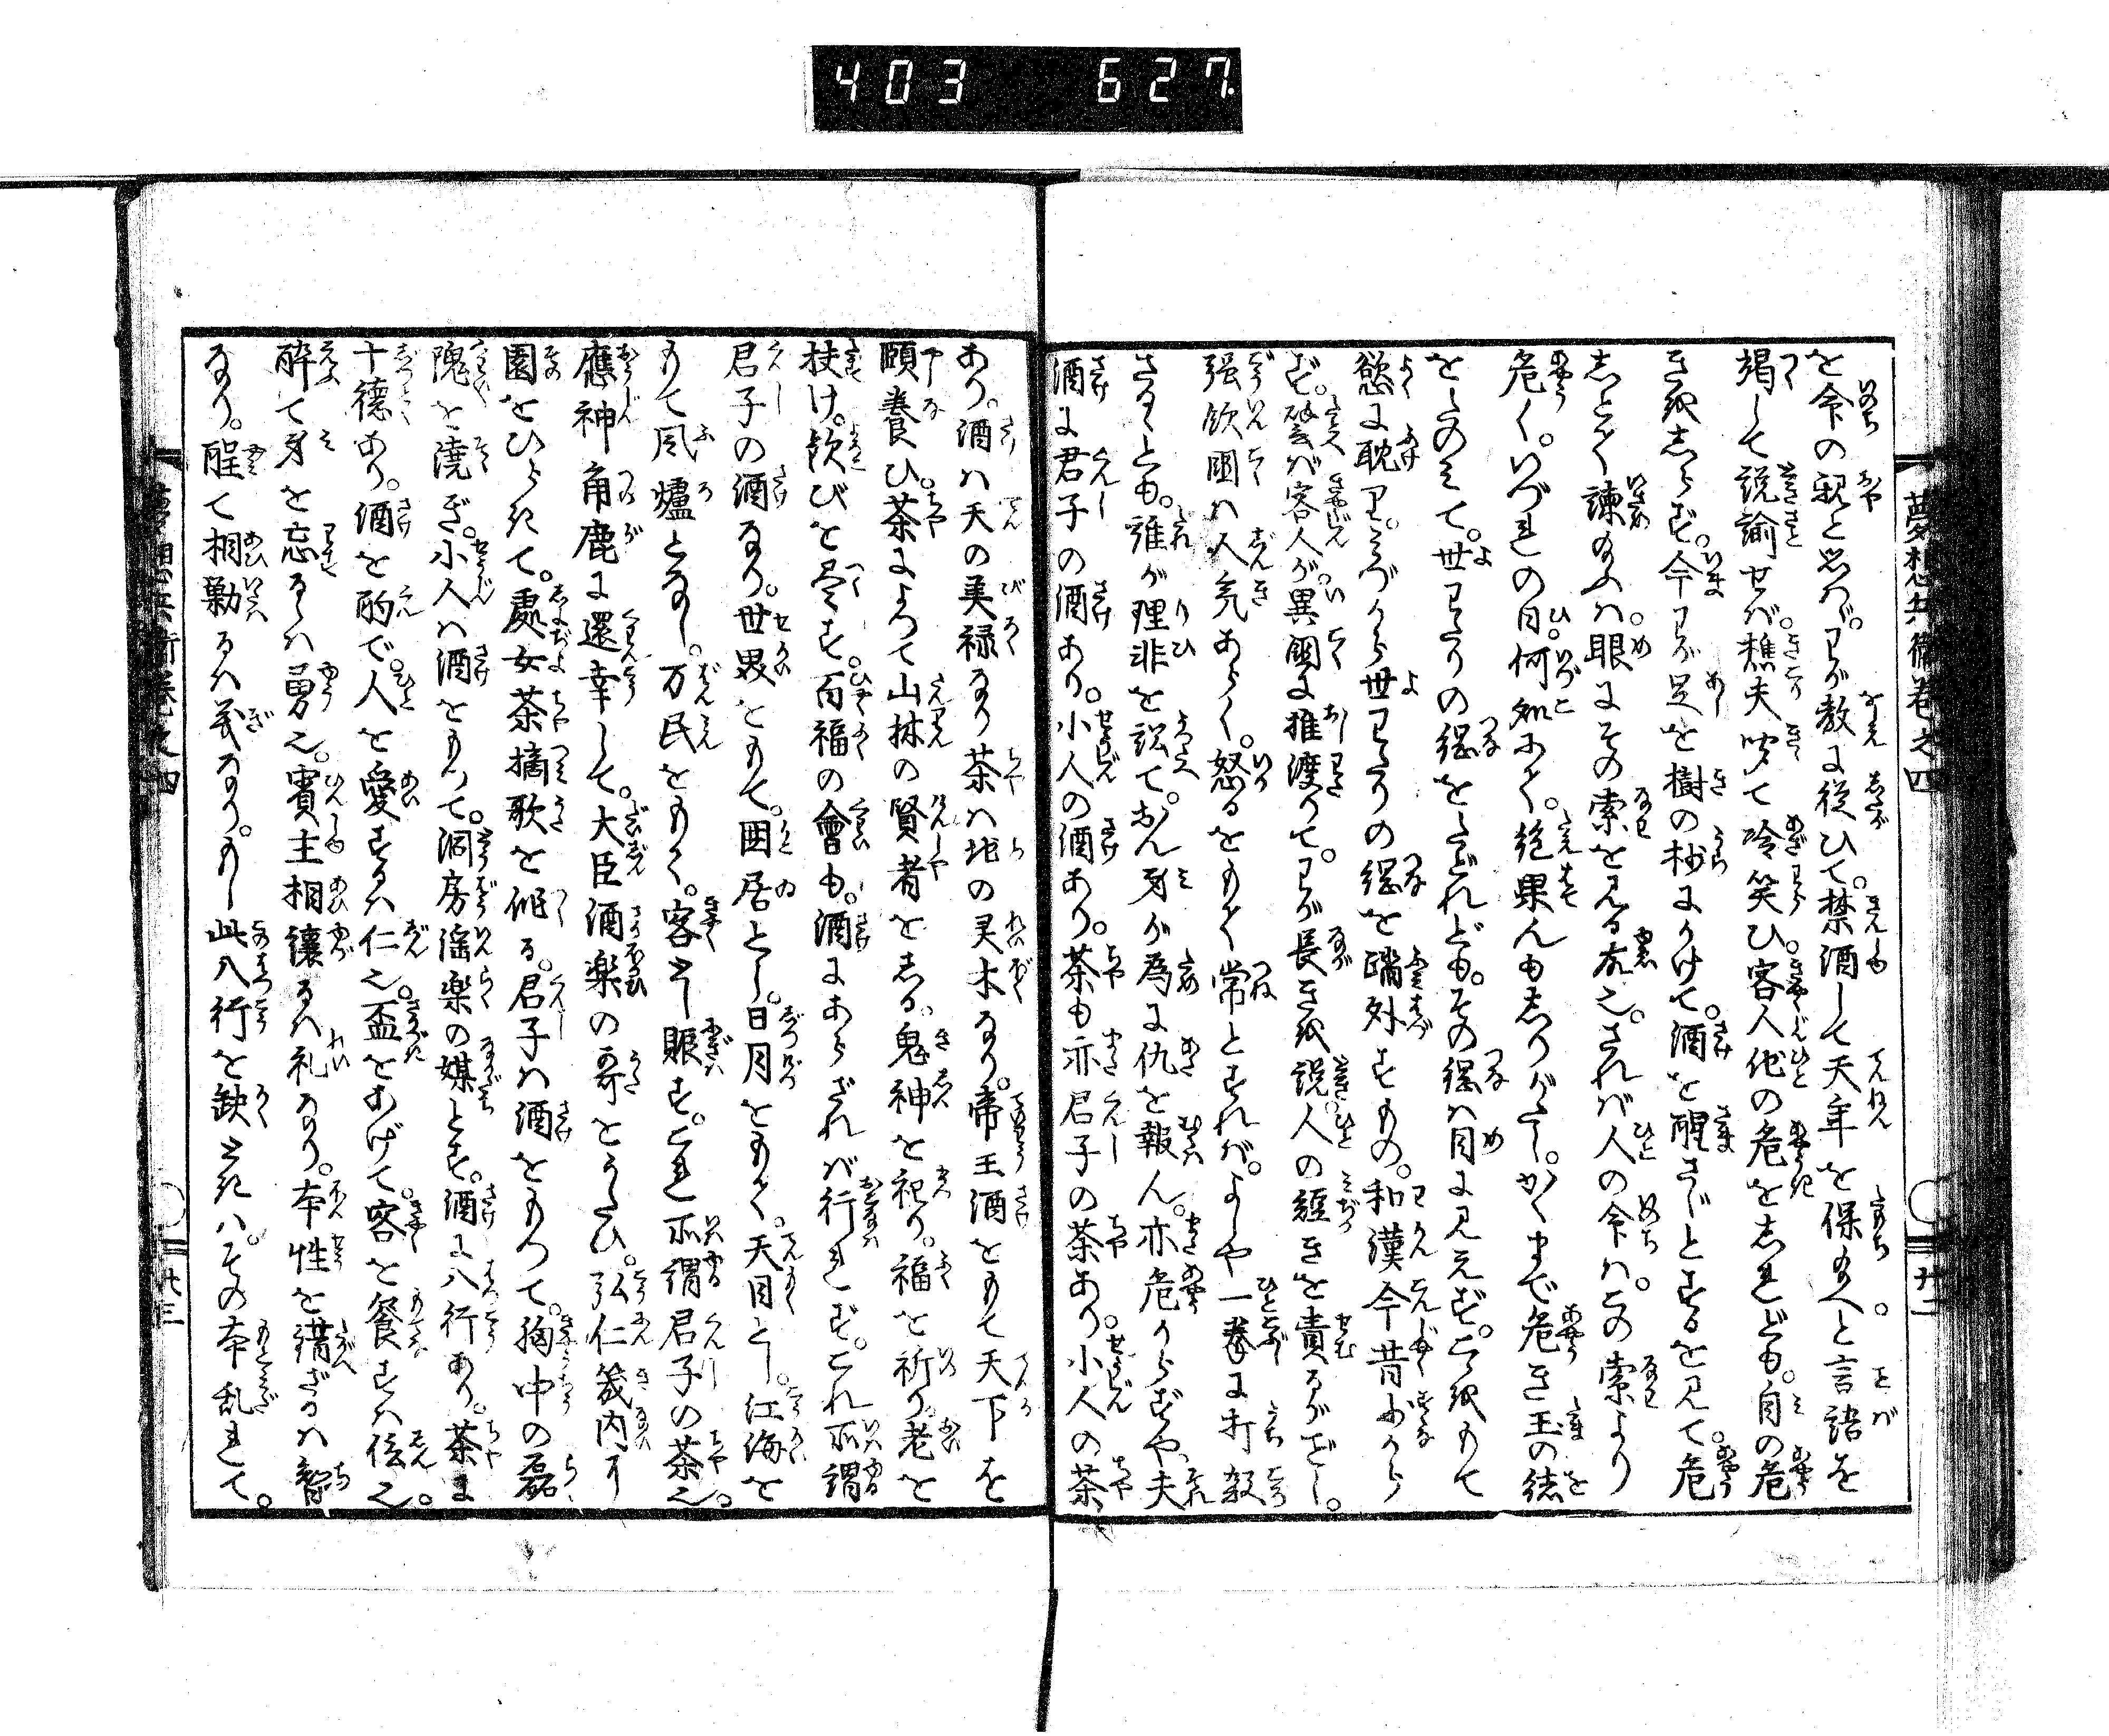 403 627.
夢想兵衛巻之四
廿二
を命の親と思はゞ。わが教に従ひて。禁酒して天年を保給へと言語を
竭して説諭せば。樵夫听て冷笑ひ。客人他の危を志れども。自の危
き越志らず。今わが足を樹の杪にかけて。酒を醒さじとするを見て。危
しとて諫給ふは。眼にその索を見る故也。されば人の命は。この索より
危く。いづれの日。何処にて。絶果んも志りがたし。かくまで危き玉の緒
をたのみて。世わたりの綱をたどれども。その綱は目に見えず。こゝ越もて
慾に耽り。みづから世わたりの綱を踏外すもの。和漢今昔少から
ず。譬ば客人が。異國に推渡りて。わが長き越説。人の短きを責るがごとし。
强飲國は人気あらく。怒るをもて常とすれば。よしや一拳に打殺
さるゝとも。誰が理非を訟て。おん身が為に仇を報ん。亦危からずや、夫
酒に君子の酒あり。小人の酒あり。茶も亦君子の茶あり。小人の茶
あり。酒は天の美禄なり茶は地の灵木なり。帝王酒をもて天下を
頤養ひ。茶によつて山林の賢者を志る。鬼神を祀り。福を祈り。老を
扶け。飲びを尽す。百福の會も。酒にあらざれば行れず。これ所謂
君子の酒なり。世界をもて。囲居とし。日月をもて。天目とし。江海を
もて風爐となし。万民をもて。客とし賑す。これ所謂君子の茶也。
應神角鹿に還幸して。大臣酒楽の哥をうたひ。弘仁畿内に
園をひらきて。處女茶摘歌を作る。君子は酒をもつて。胸中の磊
隗を澆ぎ。小人は酒をもつて。洞房滛楽の媒とす。酒に八行あり。茶に
十徳あり。酒を酌で。人を愛するは仁也。盃をあげて。客を餐すは信也。
醉て身を忘るゝは勇也。賓主相讓るは礼なり。本性を溝ざるは智
なり。酲て相勸るは義なり。もし此八行を缺ときハ。その本乱れて。
夢想兵衛巻之四
廿三